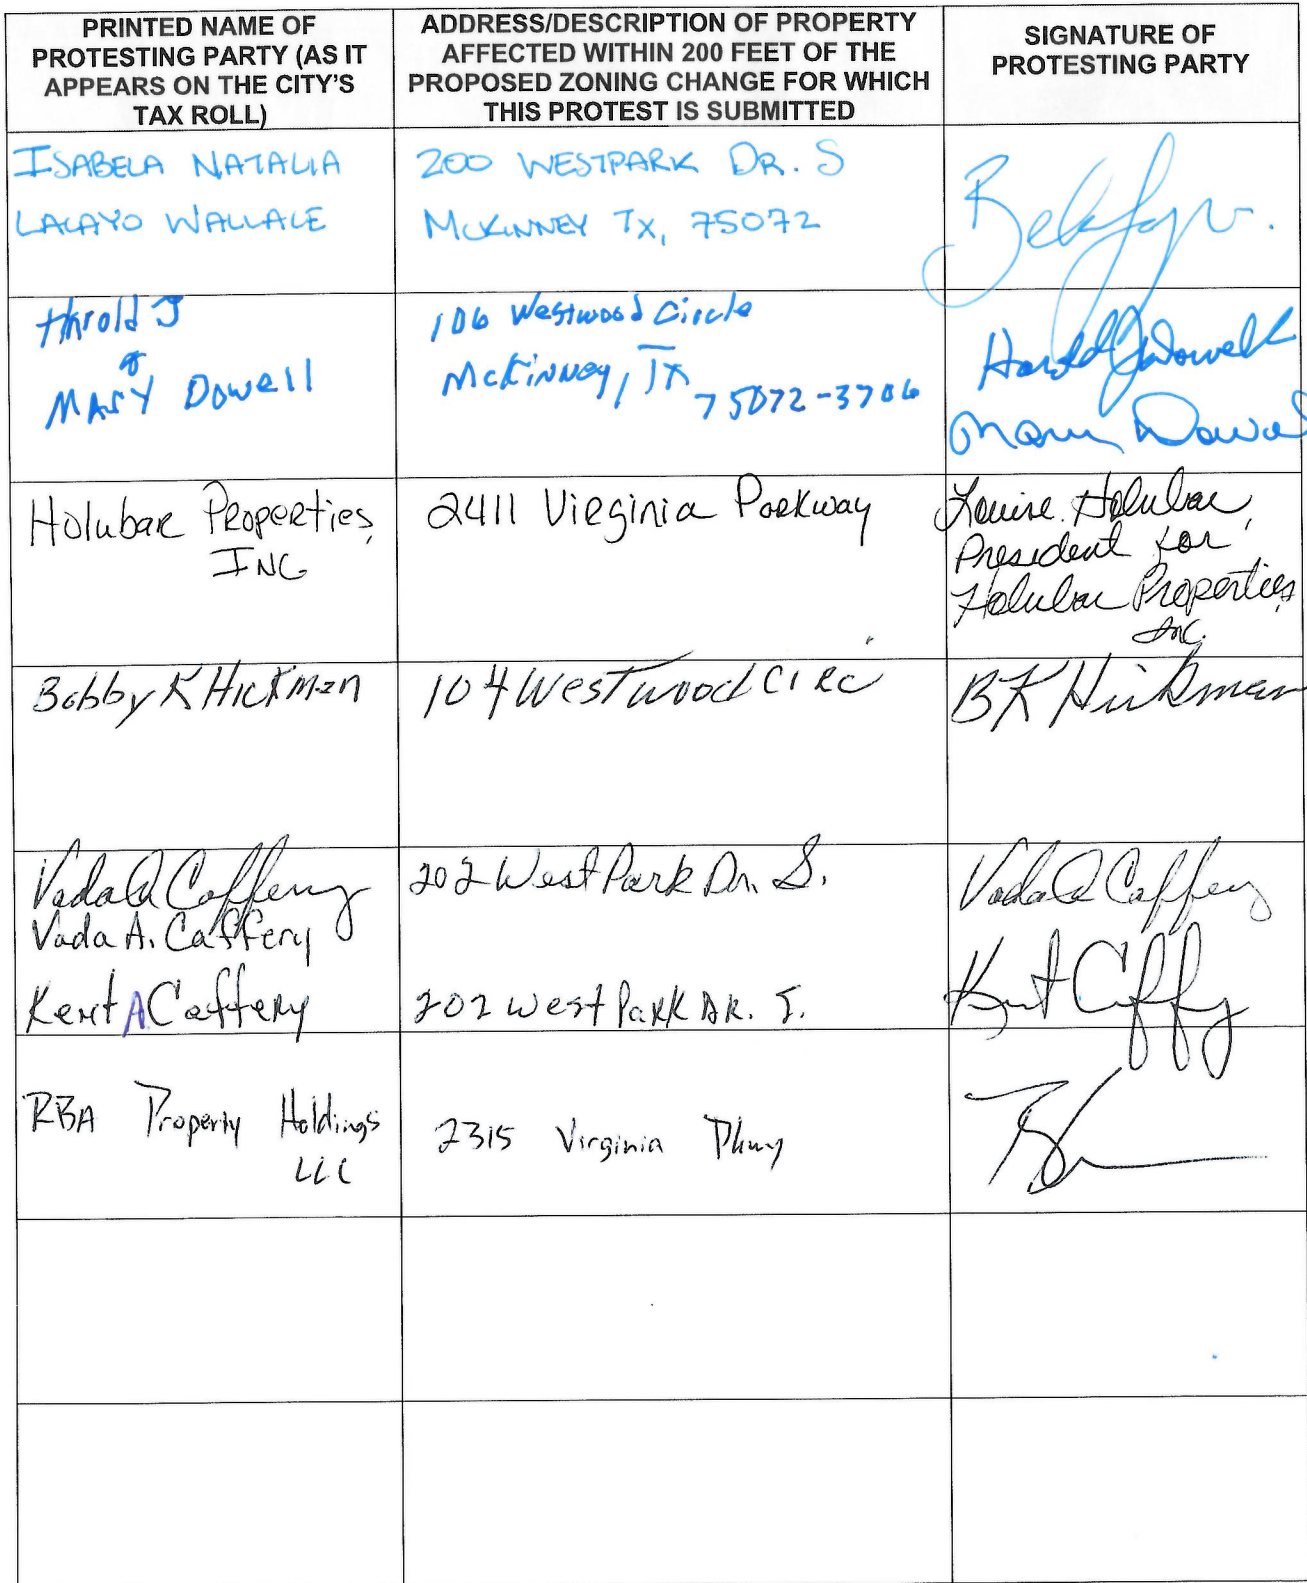 PRINTED NAME OF
PROTESTING PARTY (AS IT
APPEARS ON THE CITY'S
TAX ROLL)
ADDRESS/DESCRIPTION OF PROPERTY
AFFECTED WITHIN 200 FEET OF THE
PROPOSED ZONING CHANGE FOR WHICH
THIS PROTEST IS SUBMITTED
SIGNATURE OF
PROTESTING PARTY
ISABELA NATALIA
LACAYO WALLACE
200 WESTPARK DR. S
MCKINNEY TX, 75072
Harold J
&
MARY Dowell
106 Westwood Circle
McKinney, TX
75072-3706
Harold J Dowell
Mary Dowell
Holubar Properties,
INC
2411 Virginia Parkway
Louise Holubar,
President for
Holubar Properties,
Inc.
Bobby K Hickman
104 Westwood CIRC
BK Hickman
Vada A Caffery
Vada A. Caffery
202 West Park Dr. S.
Vada A Caffery
Kent A Caffery
202 West Park DR. S.
Kent Caffery
RBA Property Holdings
LLC
2315 Virginia Pkwy